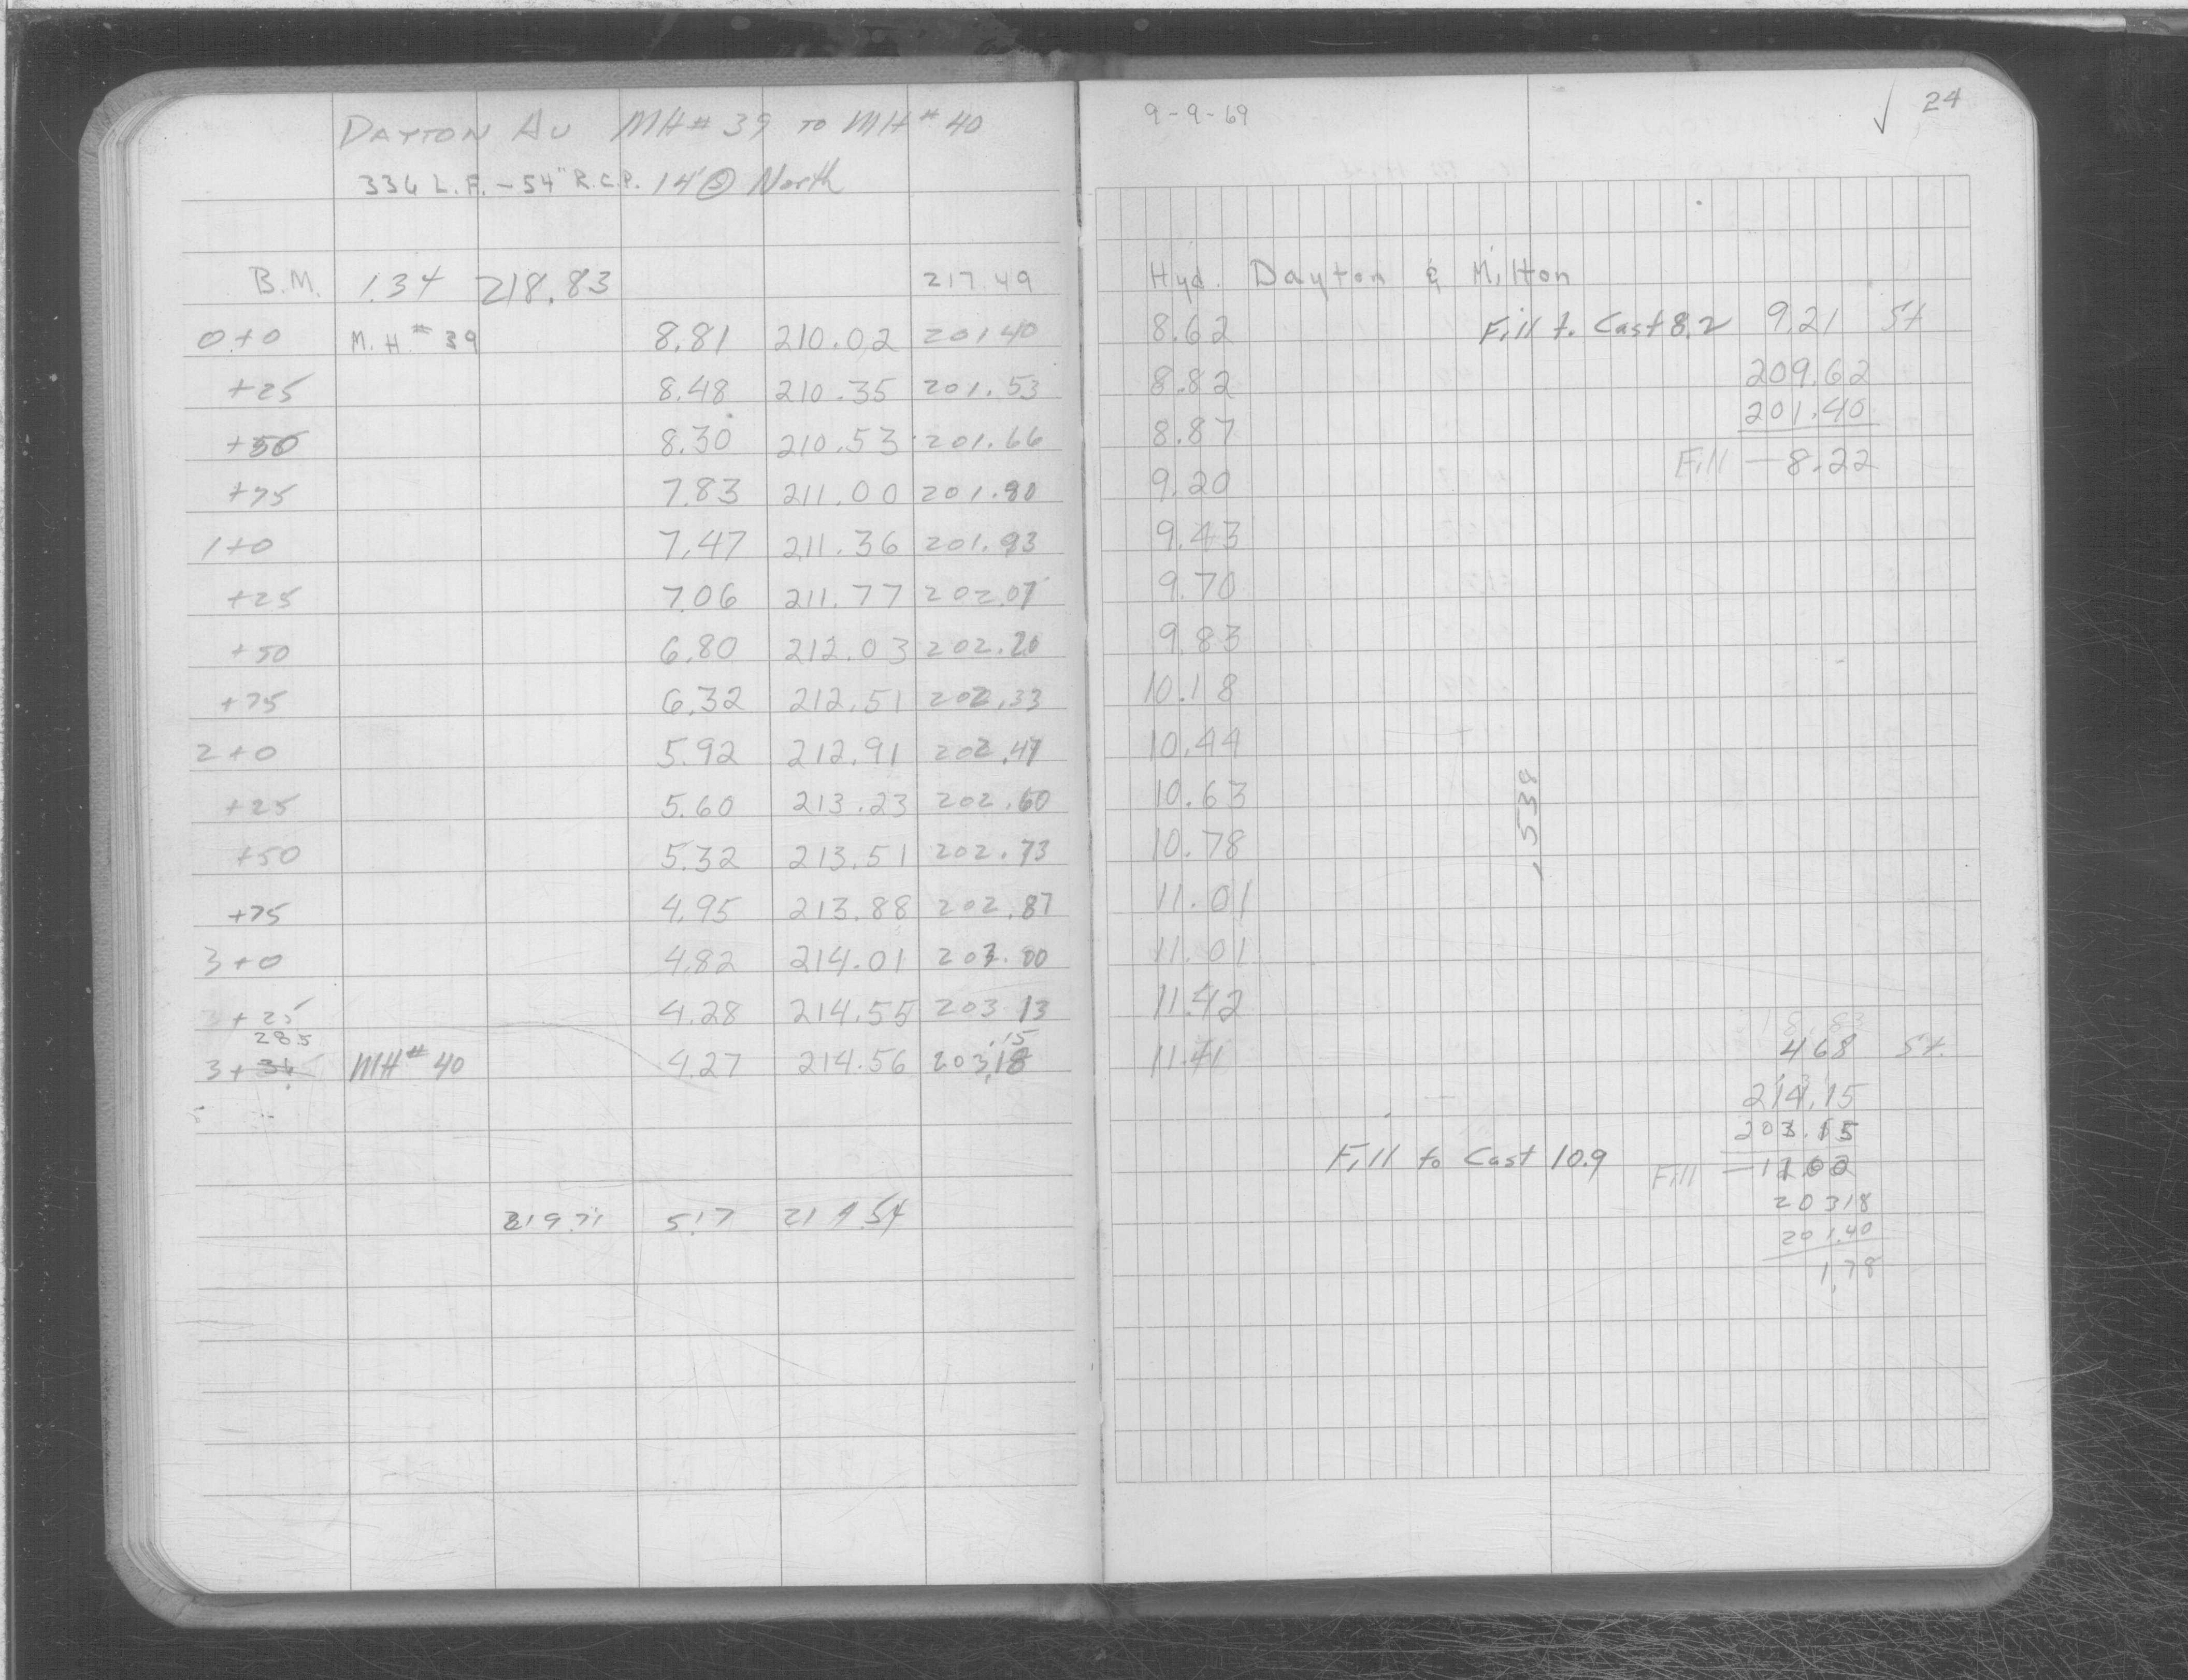 DAYTON AV MH# 39 TO MH# 40
336 L.F. - 54" R.C.P. 14' Ⓢ North
B.M. 1.34 218.83 217.49
0+0 M.H.# 39 8.81 210.02 201.40
+25 8.48 210.35 201.53
+50 8.30 210.53 201.66
+75 7.83 211.00 201.80
1+0 7.47 211.36 201.93
+25 7.06 211.77 202.07
+50 6.80 212.03 202.20
+75 6.32 212.51 202.33
2+0 5.92 212.91 202.47
+25 5.60 213.23 202.60
+50 5.32 213.51 202.73
+75 4.95 213.88 202.87
3+0 4.82 214.01 203.00
3+25 4.28 214.55 203.13
285 .15
3+36 MH# 40 4.27 214.56 203.18
219.71 5.17 214.54
9-9-69
24
Hyd. Dayton & Milton
8.62 Fill to Cast 8.2 9.21 St
8.82 209.62
201.40
8.87 Fill -8.22
9.20
9.43
9.70
9.83
10.18
10.44
10.63
.538
10.78
11.01
11.01
11.42
218.83
11.41 4.68 St.
214.15
203.15
Fill to Cast 10.9 Fill -11.00
203.18
201.40
1.78